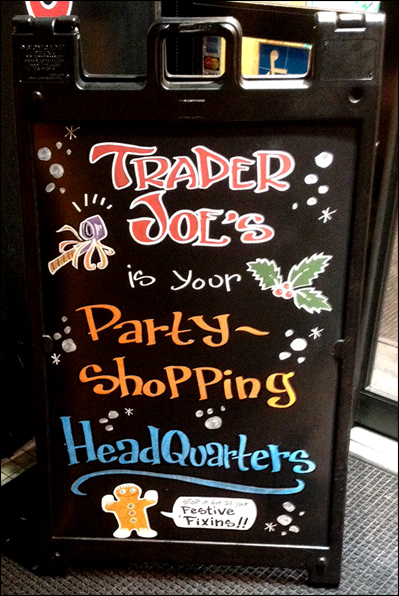 TRADER
JOE'S
is your
Party~
Shopping
HeadQuarters
STOP in for all our
Festive
'Fixins!!